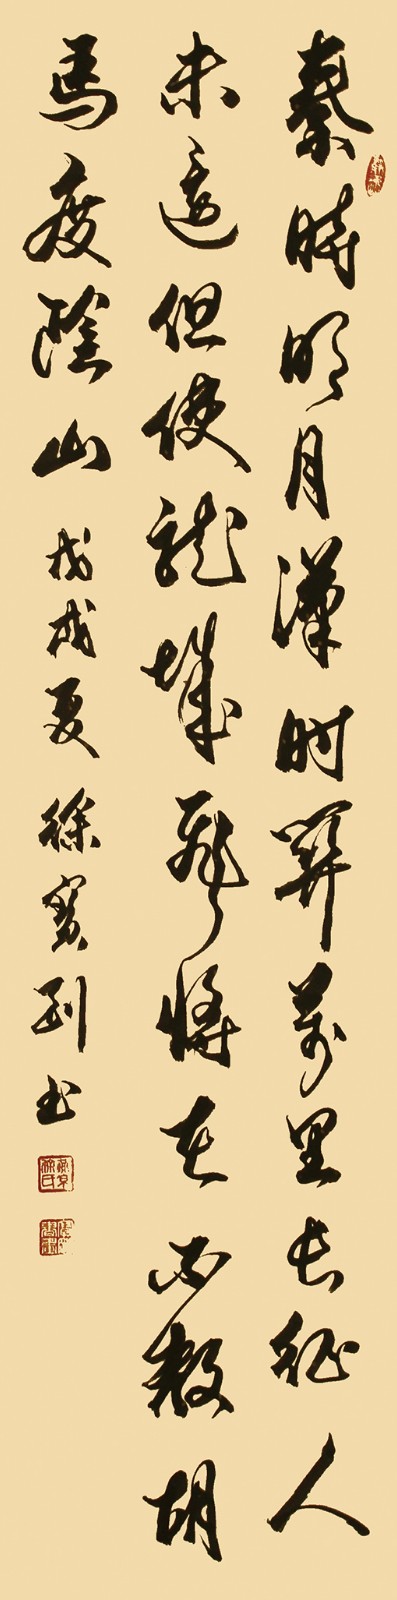 秦時明月漢时關萬里長征人
未還但使龍城飛將在不教胡
馬度陰山 戊戌夏 徐寶列书